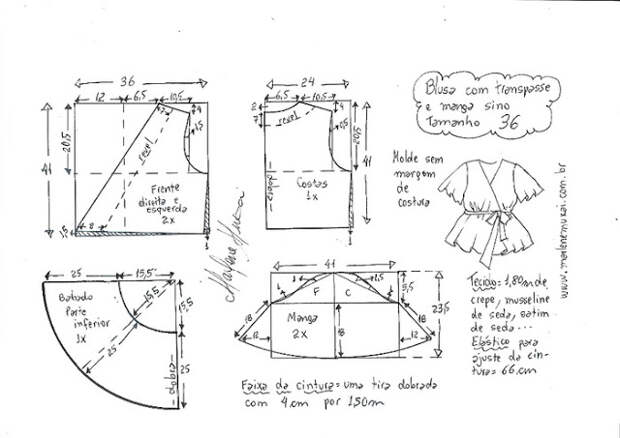 36
12 6,5 10,5
4
2
1,5
20,5
41
revel
Frente
direita e
esquerda
2x
8
1,5
1
24
6,5 10,5
2
7
4
revel
1,5
20,5
41
Costas
1x
dobra
1
Marlene Mukai
Blusa com transpasse
e manga sino
Tamanho 36
Molde sem
margem
de
costura
www.marlenemukai.com.br
25 15,5
Babado
Parte
inferior
1x
15,5
25
15,5
25
dobra
41
F C
1,5
9,5
23,5
Manga
2x
18
12
18
12
18
Tecido = 1,80m de
crepe, musseline
de seda, cetim
de seda...
Elástico para
ajuste da cin-
tura = 66cm
Faixa da cintura = uma tira dobrada
com 4cm por 150m